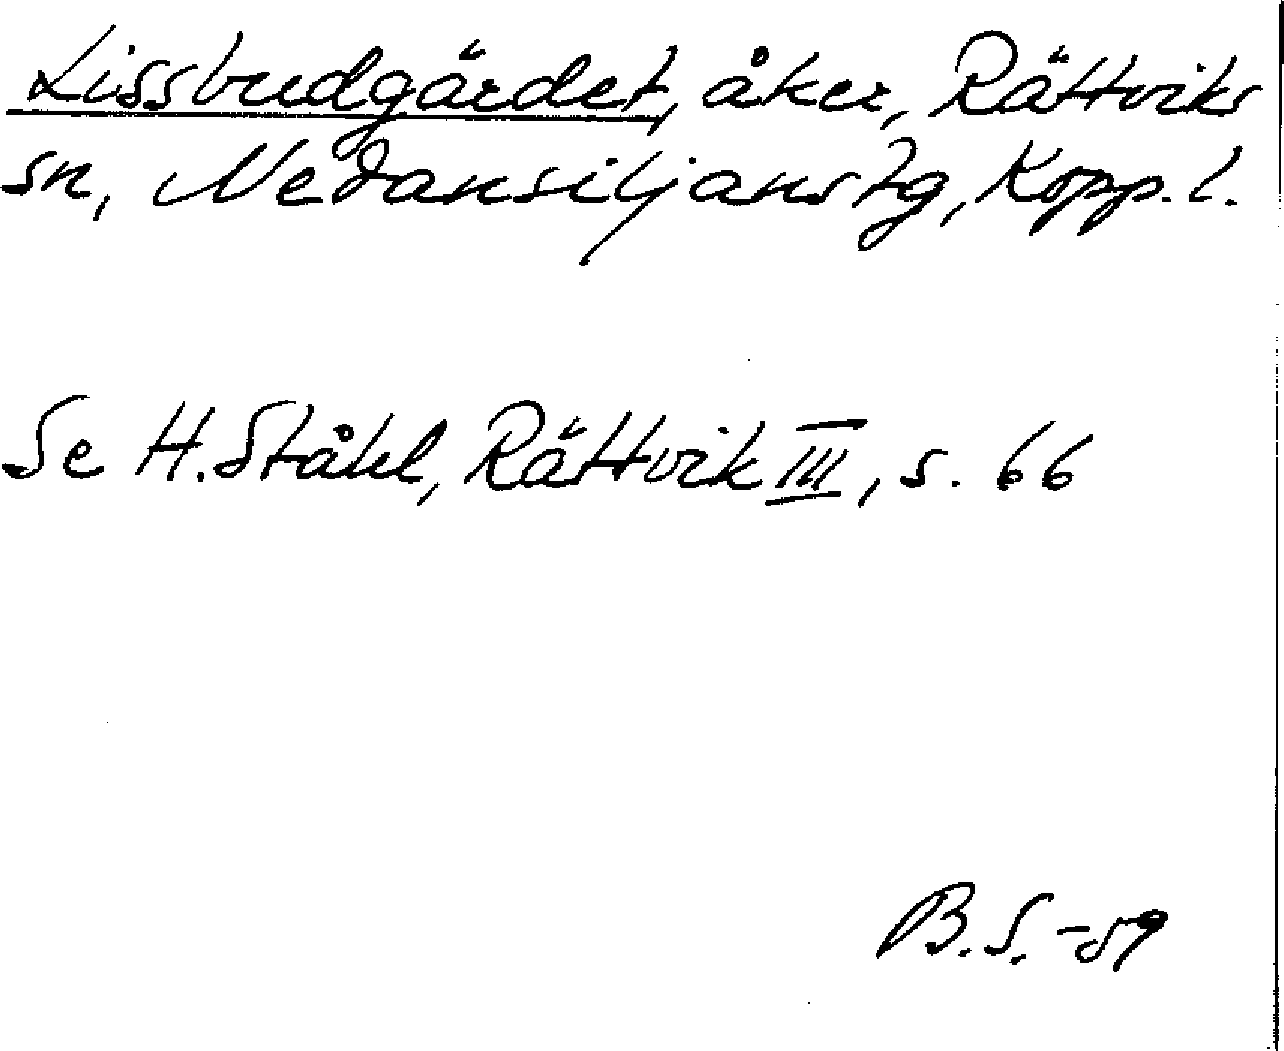 Lissbudgärdet, åker, Rättviks
sn, Nedansiljans tg, Kopp. l.
Se H. Ståhl, Rättvik III, s. 66
B.S. -59